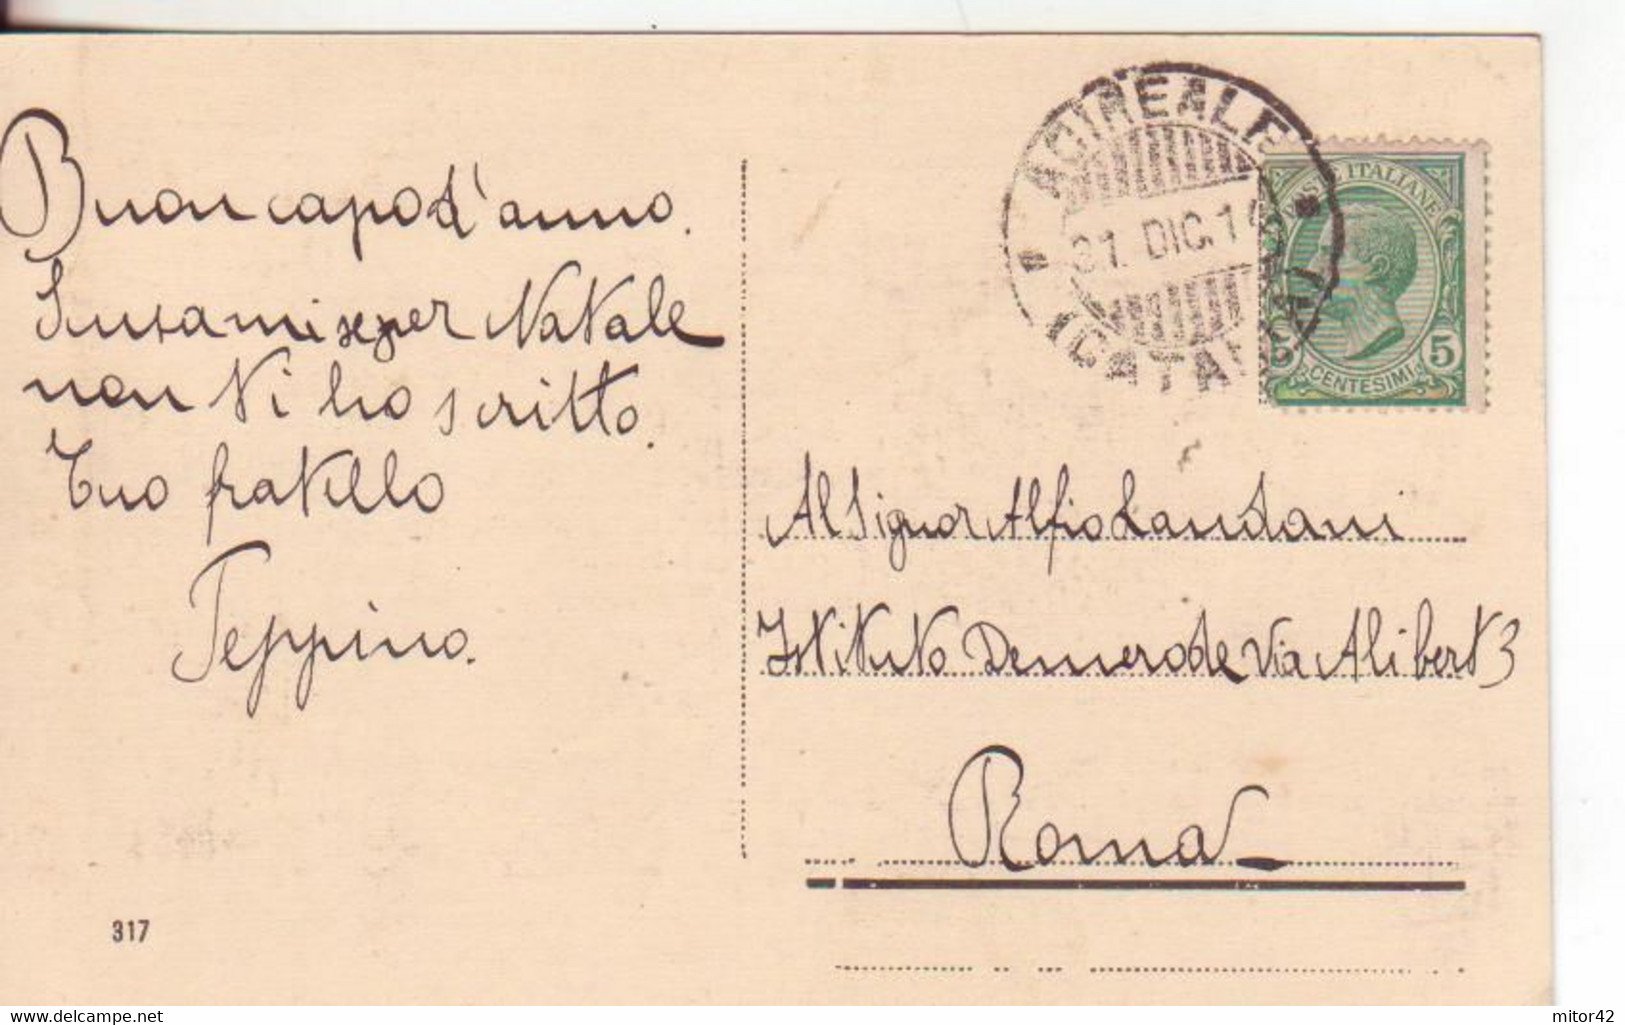 Buon capod'anno.
Scusami se per Natale
non Vi ho scritto.
Tuo fratello
Teppino.
317
ACIREALE
31. DIC. 1
(CATANIA)
POSTE ITALIANE
5 5
CENTESIMI
Al Signor Alfio Landani
Istituto Demerode Via Alibert 3
Roma
delcampe.net
mitor42